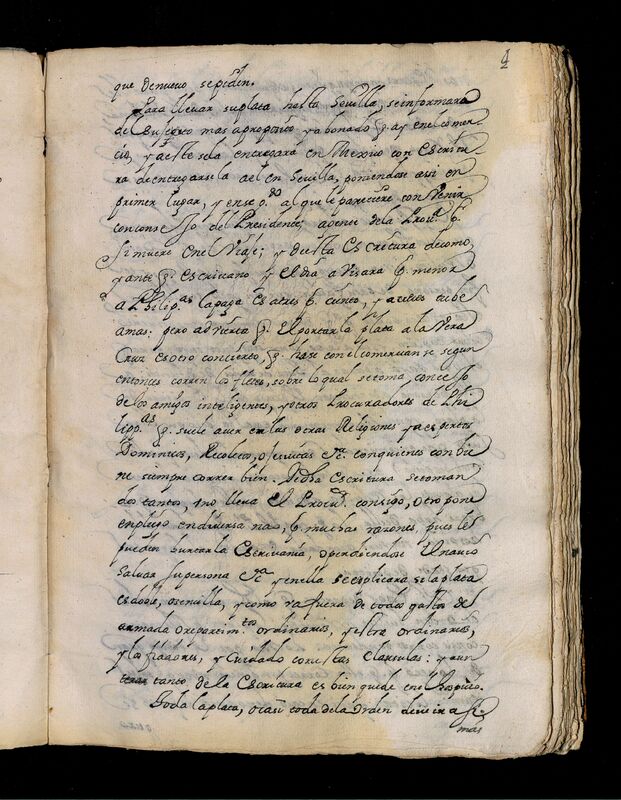 4
que de nuevo se piden.
Para llevar su plata hasta Sevilla, se informara
del sugeto mas a proposito y abonado q. ay en el comer-
cio, y a este se la entregarà en Mexico con Escritu-
ra de entregarsela a el en Sevilla, poniendose assi en
primer lugar, y en seg.do al que le pareciere convenir
con conse Jo del Presidente, agente de la Prov.a
si muere en el viaje; y de esta Escritura de como,
y ante q. Escrivano y el dia avisara p. menor
a Philip.as la paga es a tres p. ciento, y a veces tube
a mas: pero advierta q. El portear la plata a la Vera
Cruz es otro concierto, q. hase con el comerciante segun
entonces corren los fletes, sobre lo qual se toma, conse Jo
de los amigos inteligentes, y otros Procuradores de Phi-
lipp.as q. suele aver en las otras Religiones ya expertos
Dominicos, Recoletos, o Jesuitas &c.a con quienes convie-
ne siempre correr bien. Dicha Escritura se toman
dos tantos, uno lleva El Proc.or consigo, otro pone
en pliego en diversa nao, p. muchas razones, pues le
pueden hurtar la Escrivania, o perdiendose El navio
salvar su persona &c.a y en ella se explicara si la plata
es doble, o sencilla, y como va fuera de todos gastos de
armada o repartim.tos ordinarios, y extra ordinarios,
y los fiadores, y cuidado con estas clausulas: y aun
tanto de la Escritura es bien quede en el Hospicio.
Toda la plata, o casi toda de la Orden deve ir a
mas